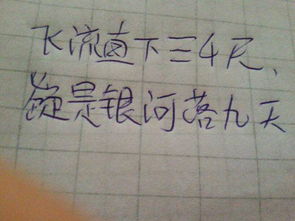 飞流直下三千尺、
疑是银河落九天